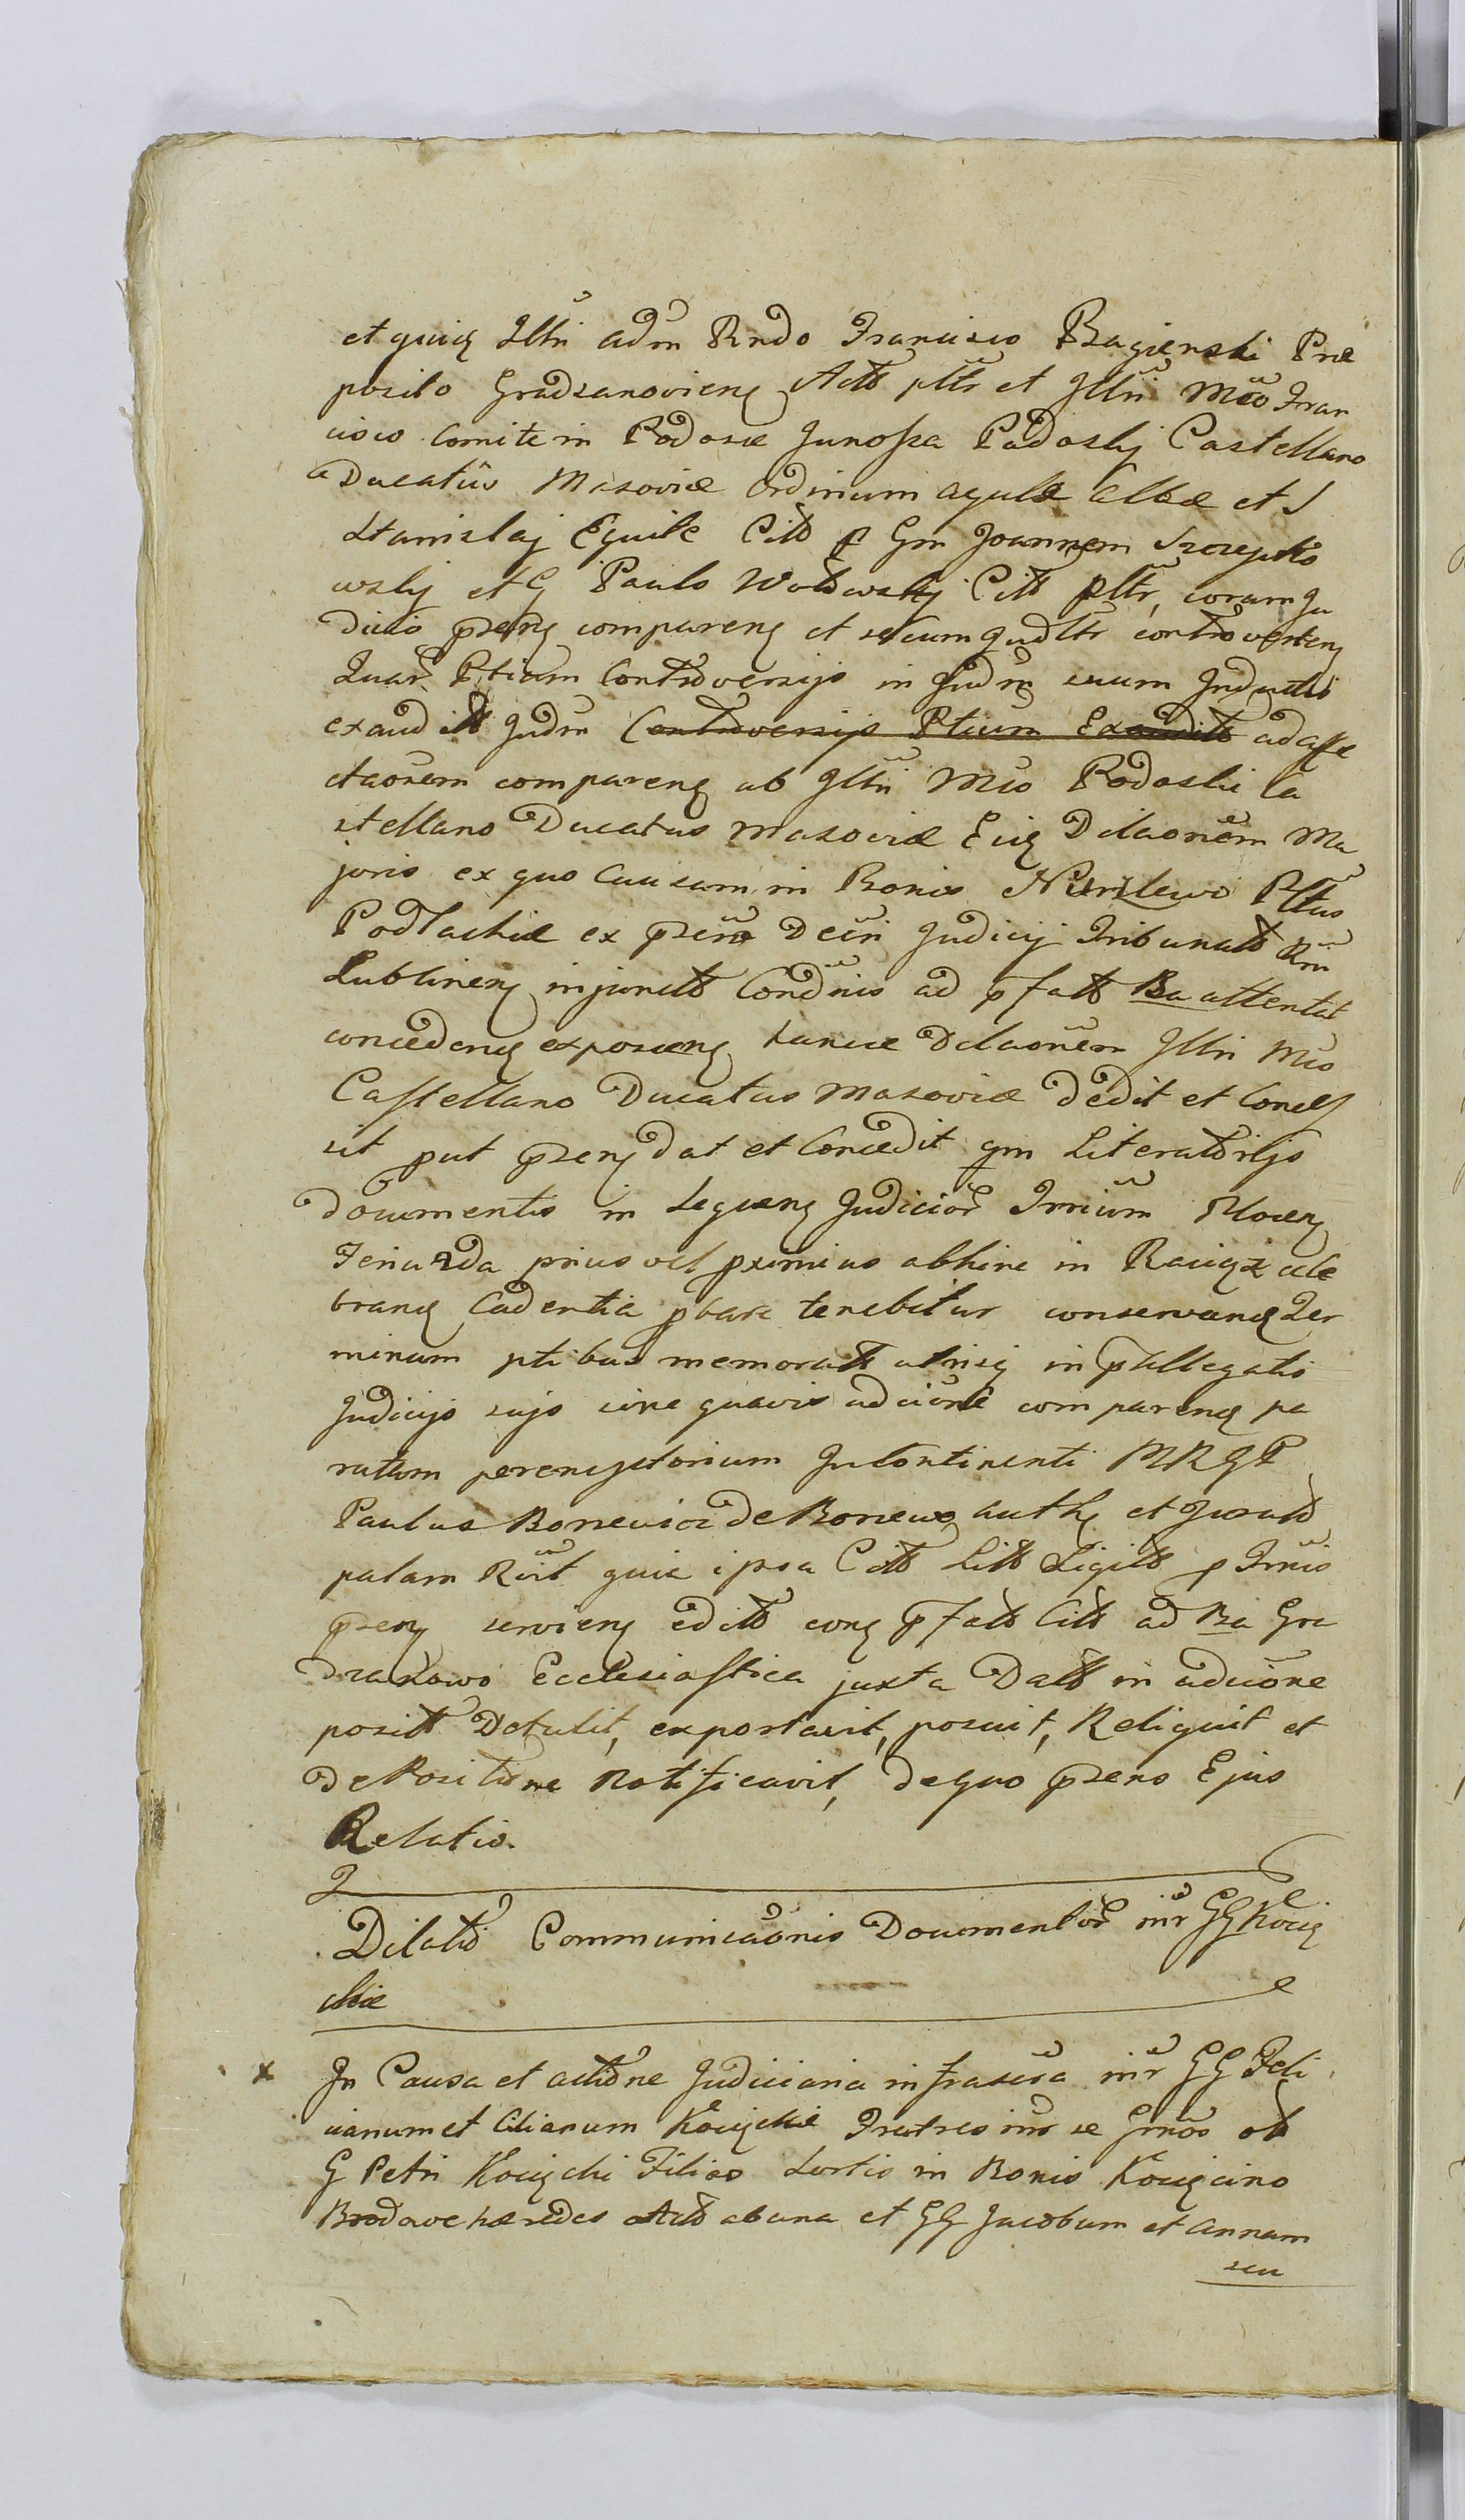 et quis Illri adm Rndo Francisco Bagienski Præ
posito Gradzanoviens Actt pltr et Illri Mco Fran
cisco Comite in Podosie Junosza Podoskj Castellano
Ducatus Masoviæ Ordinum aquilæ albæ et S
Stanislaj Equite Citt p Gm Joannem Szczepko
wskj et G Paulo Wodowskj Citt pltr, coram Ju
dicio pzens comparens et secum Judltr controvertens
Quar Ptium Controversijs in Judm suum Inductis
exauditt Judm Controversijs Ptium Exauditt ad affe
ctaonem comparens ab Illri Mco Podoskii Ca
stellano Ducatus Masoviæ Eius Dilaonem Ma
joris ex quo Causam in Bonis Pttus
Podlachiæ ex pzens Decri Judicij Tribunalt Rni
Lublinens injunctt Condnis ad pfatt Ba attentat
concedens exposcens hancce Dilaonem Illri Mco
Castellano Ducatus Masoviæ dedit et Conces
sit put pzens dat et Concedit qm Literatorijs
documentis in sequens Judicior Trrium Plocens
Feriarda prius vel pximius abhinc in Raciąż cele
brans Cadentia pbare tenebitur conservans Ter
minum ptibus memoratt utrisq in pallegatis
Judicijs sujs sine quavis adcione comparens pa
ratum peremptorium Incontinenti MRGP
Paulus Boniewicz de Boniewo auths et Juratt
palam Rvit quia ipsa Citt Litt Sigitt p Trmis
pzens serviens editt cons pfatt Citt ad Ba Gra
dzanowo Ecclesiastica juxta Datt in adcione
positt Detulit, exportavit, posuit, Reliquit et
de Positione Notificavit, de quo pzens Ejus
Relatio.
Dilatio Communicaonis Documentor intr GG Kocię
ckie
x In Causa et actione Judiciaria infrascra intr GG Feli
cianum et Cilianum Kocięckie Fratres intr se Grnos olt
G Petri Kocięcki Filios Sortis in Bonis Kocięcino
Brodowe hæredes Actt ab una et GG Jacobum et Annam
seu